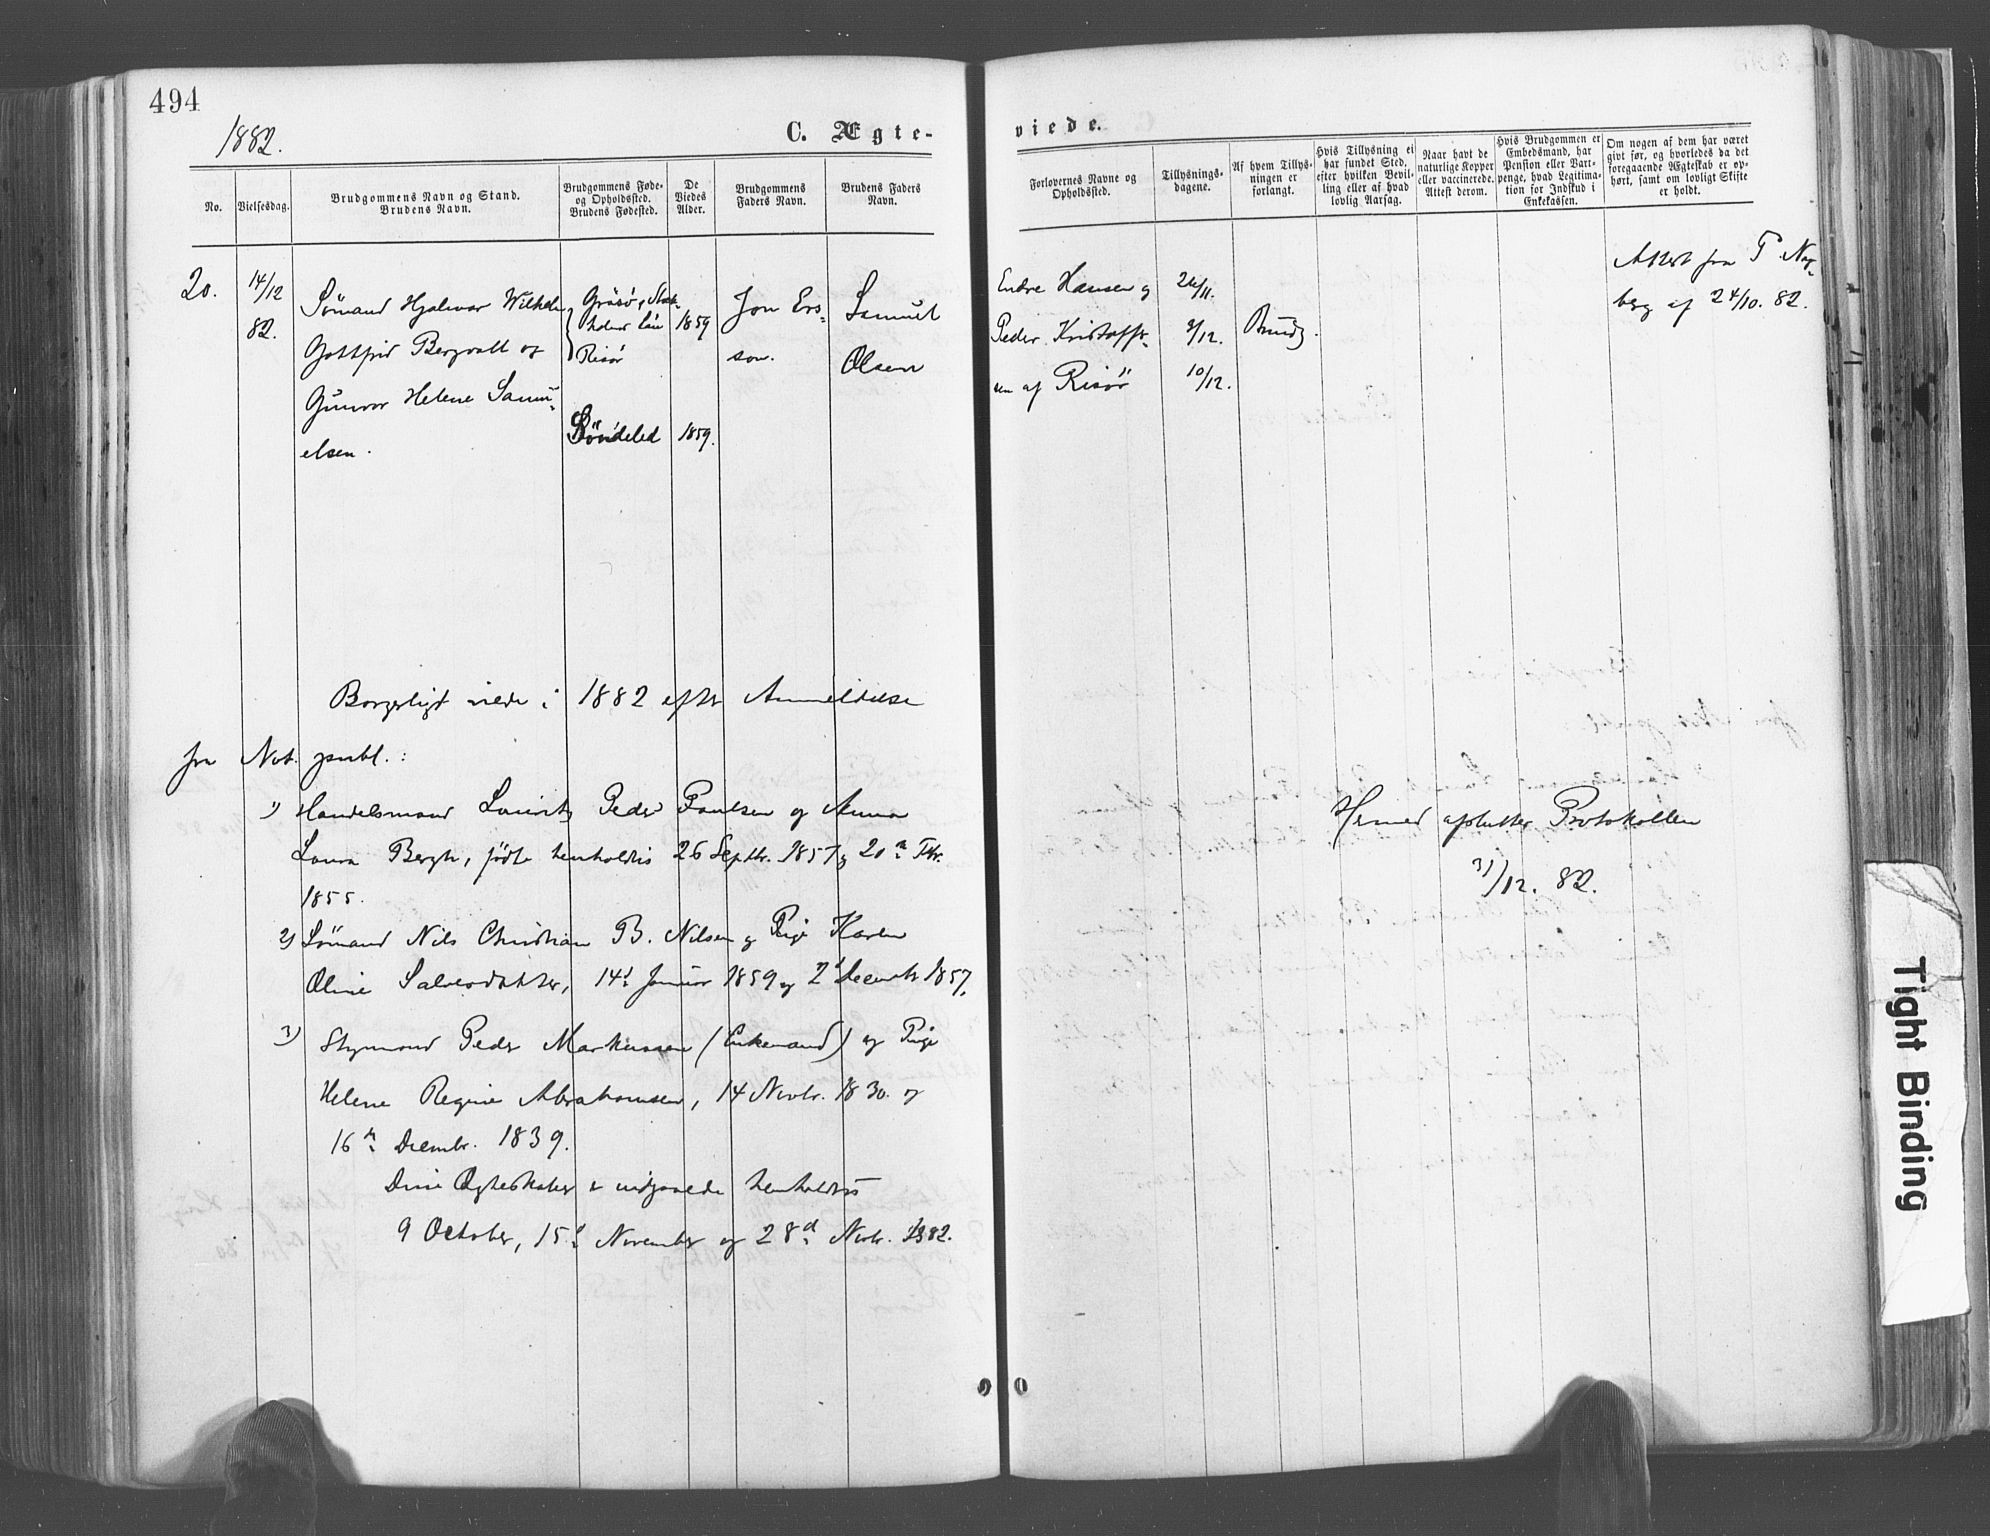 494
1882.
C. Ægte-
viede.
No.
Vielsesdag.
Brudgommens Navn og Stand.
Brudens Navn.
Brudgommens Føde-
og Opholdssted.
Brudens Fødested.
De
Viedes
Alder.
Brudgommens
Faders Navn.
Brudens Faders
Navn.
Forlovernes Navne og
Opholdssted.
Tillysnings-
dagene.
Af hvem Tillys-
ningen er
forlangt.
Hvis Tillysning ei
har fundet Sted,
efter hvilken Bevil-
ling eller af hvad
lovlig Aarsag.
Naar havt de
naturlige Kopper
eller vaccinerede.
Attest derom.
Hvis Brudgommen er
Embedsmand, har
Pension eller Vart-
penge, hvad Legitima-
tion for Indskud i
Enkekassen.
Om nogen af dem har været
givt før, og hvorledes da det
foregaaende Ægteskab er op-
hørt, samt om lovligt Skifte
er holdt.
20.
14/12
82.
Sømand Hjalmar Wilhelm
Gottfrid Bergvall og
Gunvor Helene Samu-
elsen.
Gräsö, Stok-
holms län
Risør
Söndeled
1859
1859.
Jon Ers-
son.
Samuel
Olsen
Endre Hansen og
Peder Kristoffer-
sen af Risør
26/11.
3/12.
10/12.
Brudg.
Attest fra
berg af 24/10. 82.
Borgerligt viede i 1882 efter Anmeldelse
fra Not. publ.:
1) Handelsmand Lauritz Peder Paulsen og Anna
Laura Bergh, fødte henholdsvis 26 Septbr. 1857 og 20de Fbr.
1855.
2) Sømand Nils Christian B. Nilsen og Pige Karen
Oline Salvesdatter, 14d Januar 1859 og 2d Decembr 1857.
3) Styrmand Peder Markussen (Enkemand) og Pige
Helene Regine Abrahamsen, 14 Novbr. 1830. og
16de Decembr. 1839.
Disse Ægteskaber er indgaaede henholdsvis
9 October, 15d November og 28d Novbr. 1882.
Hermed afsluttes Protokollen
31/12. 82.
Tight Binding